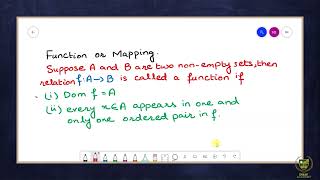 Function or Mapping.
Suppose A and B are two non-empty sets, then
relation f: A→B is called a function if
(i) Dom f = A
(ii) every x∈A appears in one and
only one ordered pair in f.